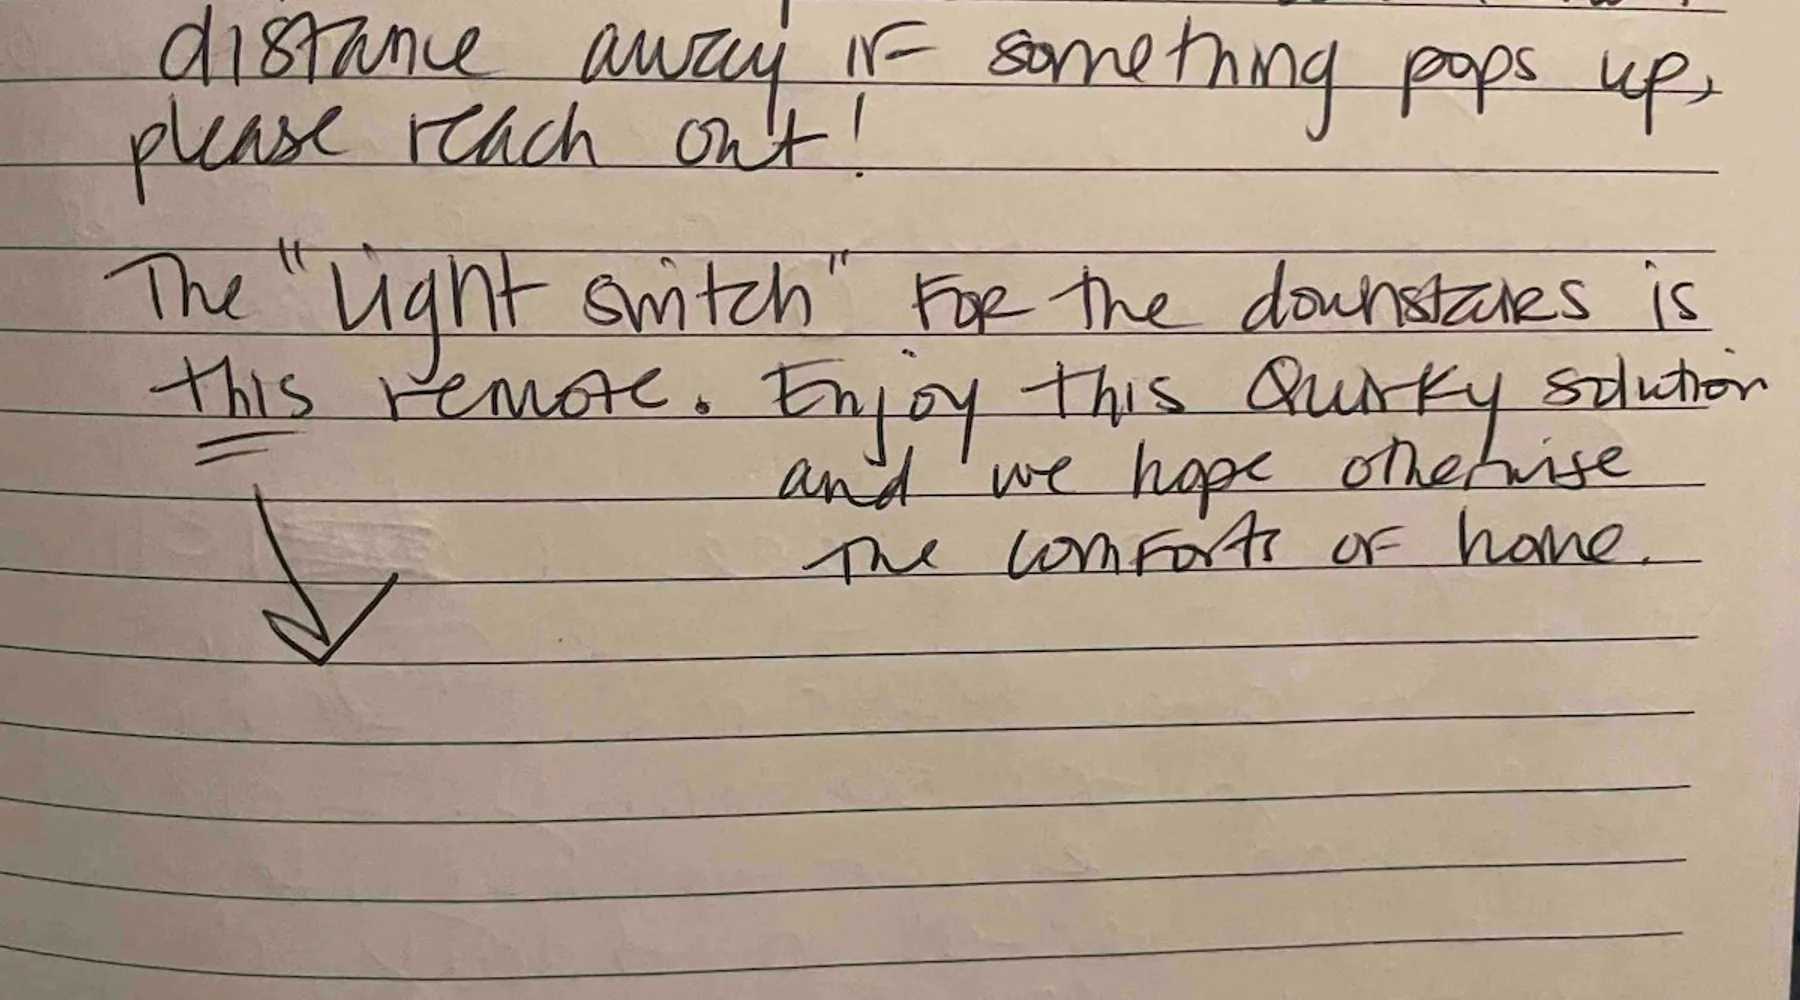 distance away if something pops up,
please reach out!
The "Light switch" For the downstairs is
this remote. Enjoy this Quirky solution
and we hope otherwise
the comforts of home.